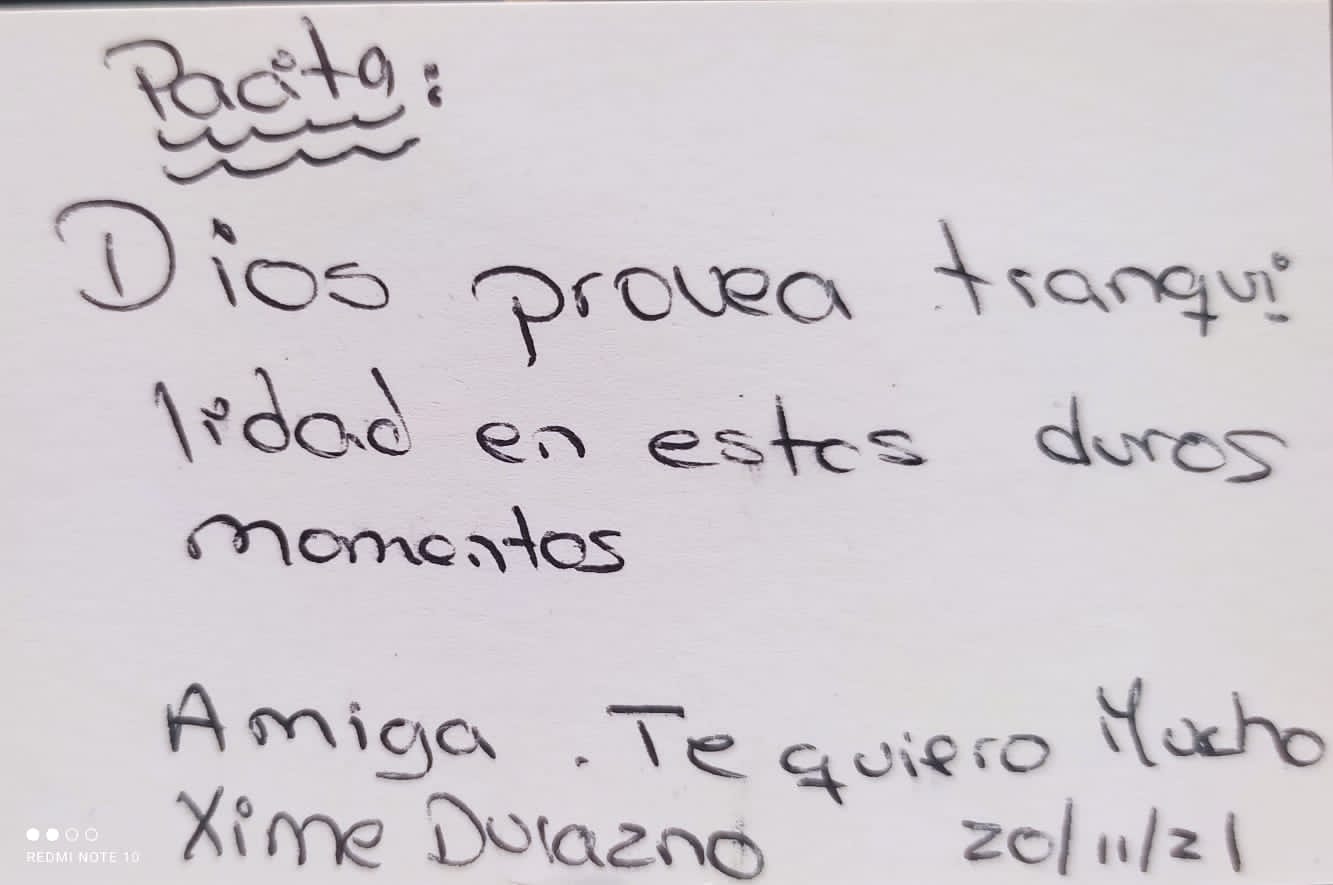 Pacita:
Dios provea tranqui
lidad en estos duros
momentos
Amiga. Te quiero Mucho
Xime Durazno 20/11/21
REDMI NOTE 10